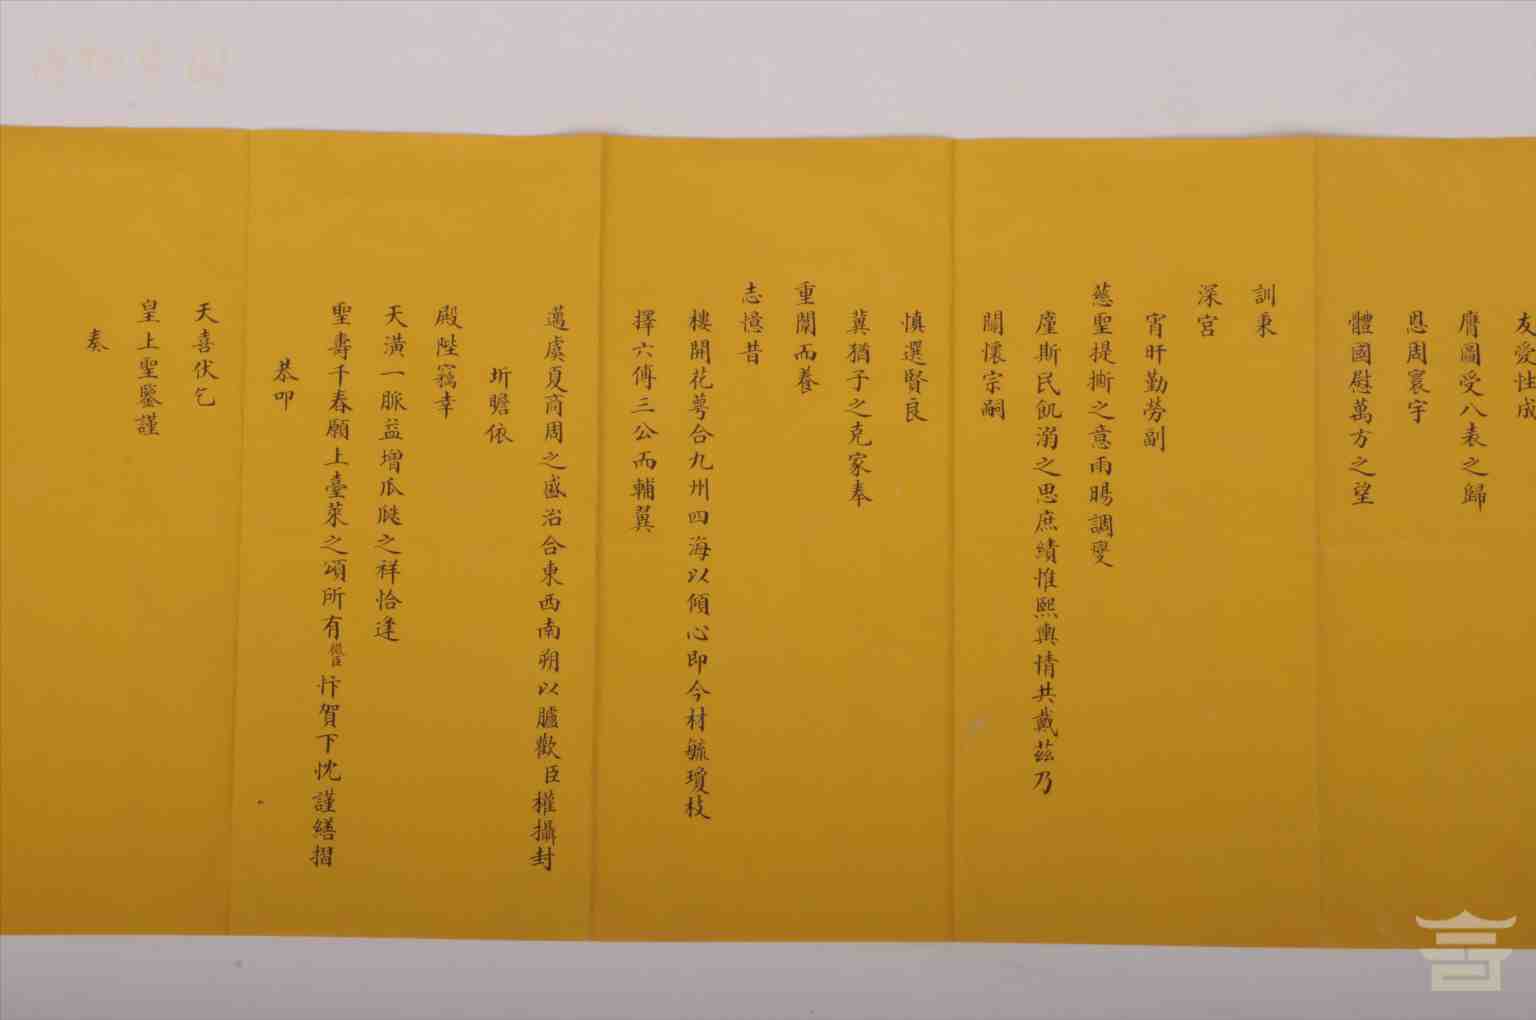 友愛性成
膺圖受八表之歸
恩周寰宇
體國慰萬方之望
訓秉
深宮
宵旰勤勞副
慈聖提撕之意雨暘調燮
廑斯民飢溺之思庶績惟熙輿情共戴茲乃
關懷宗嗣
慎選賢良
冀猶子之克家奉
重闈而養
志憶昔
樓開花萼合九州四海以傾心即今材毓瓊枝
擇六傅三公而輔翼
邁虞夏商周之盛治合東西南朔以臚歡臣權攝封
圻瞻依
殿陛竊幸
天潢一脈益增瓜瓞之祥恰逢
聖壽千春願上臺萊之頌所有微臣忭賀下忱謹繕摺
恭叩
天喜伏乞
皇上聖鑒謹
奏